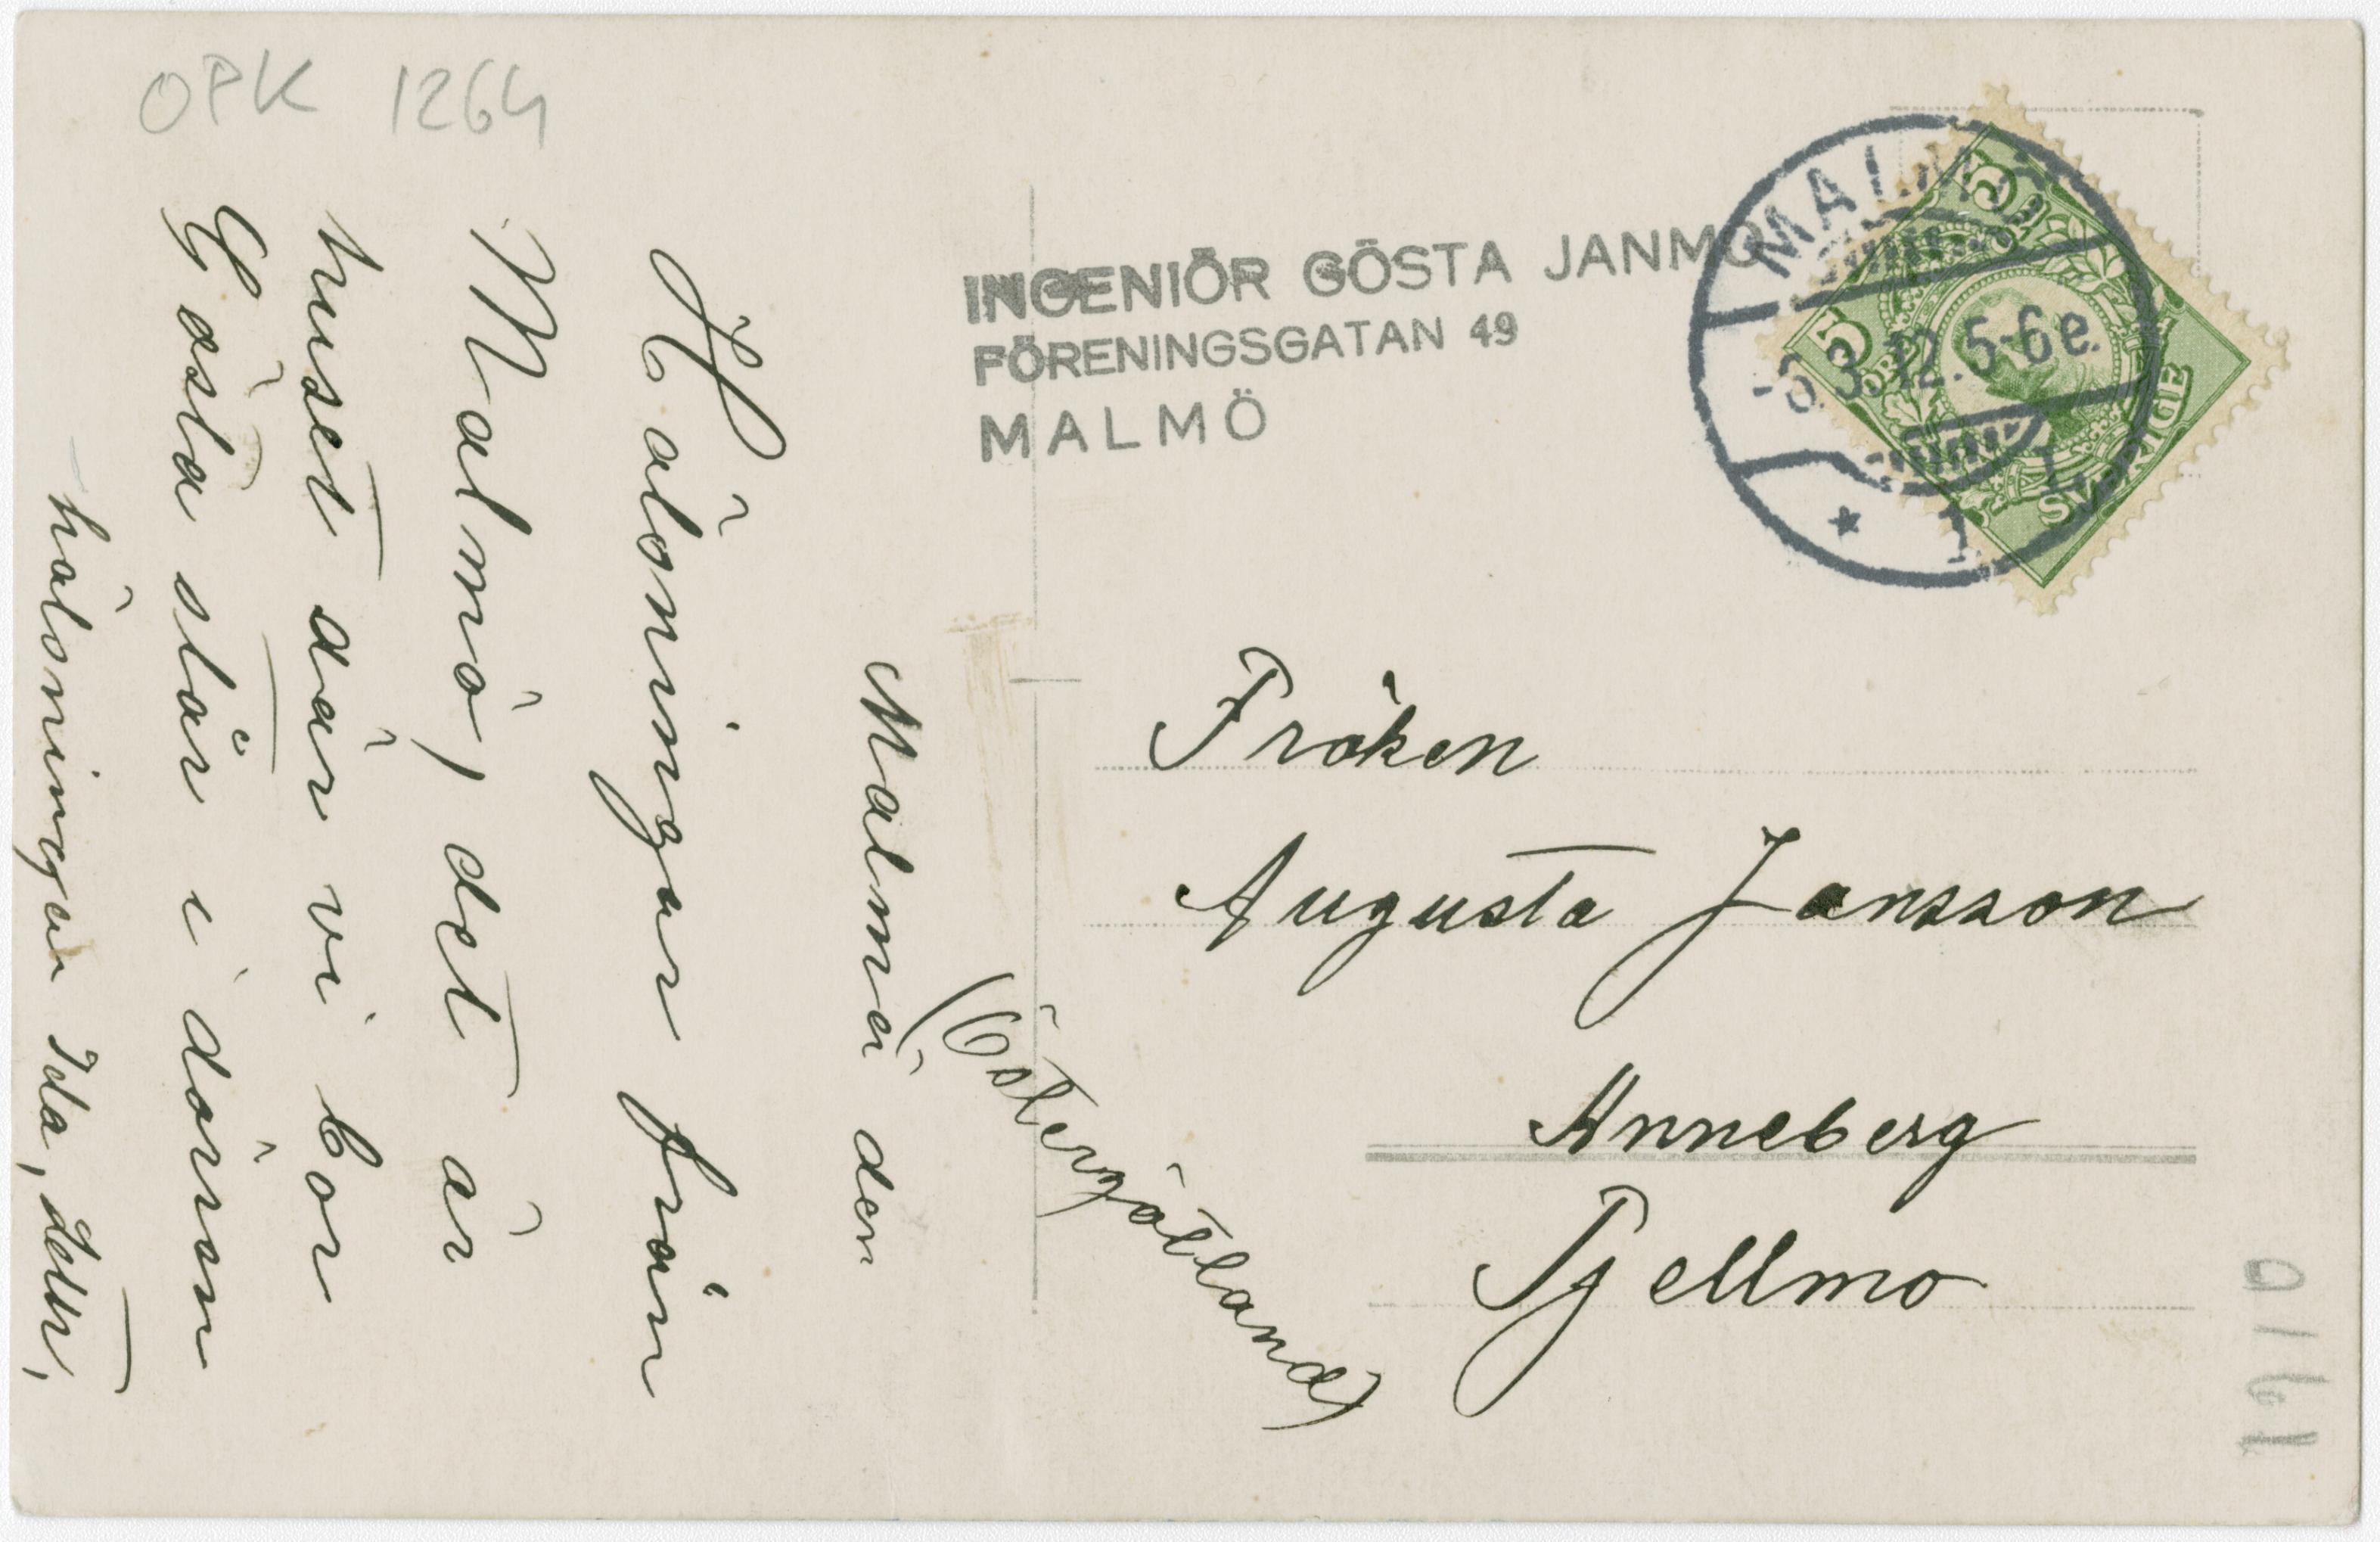 OPK 1264
Malmö den
Hälsningar från
Malmö, det är
huset där vi bor
Gösta står i dörren
hälsningen Ida, dettr,
INGENIÖR GÖSTA JANMO
FÖRENINGSGATAN 49
MALMÖ
MALMÖ
-6.3.12.5-6e.
1
5 ÖRE 5
SVERIGE
Fröken
Augusta Jansson
Anneberg
Tjellmo
(Östergötland)